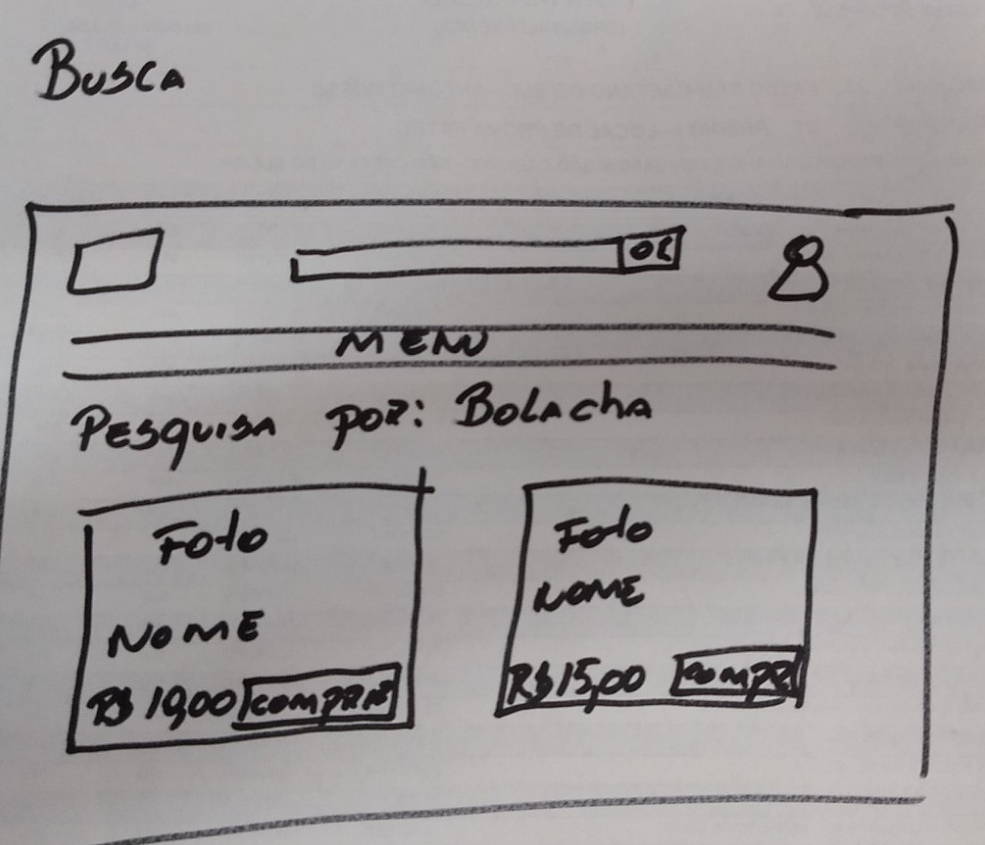 Busca
OK
MENU
Pesquisa por: Bolacha
Foto
NOME
R$ 10,00 comprar
Foto
NOME
R$ 15,00